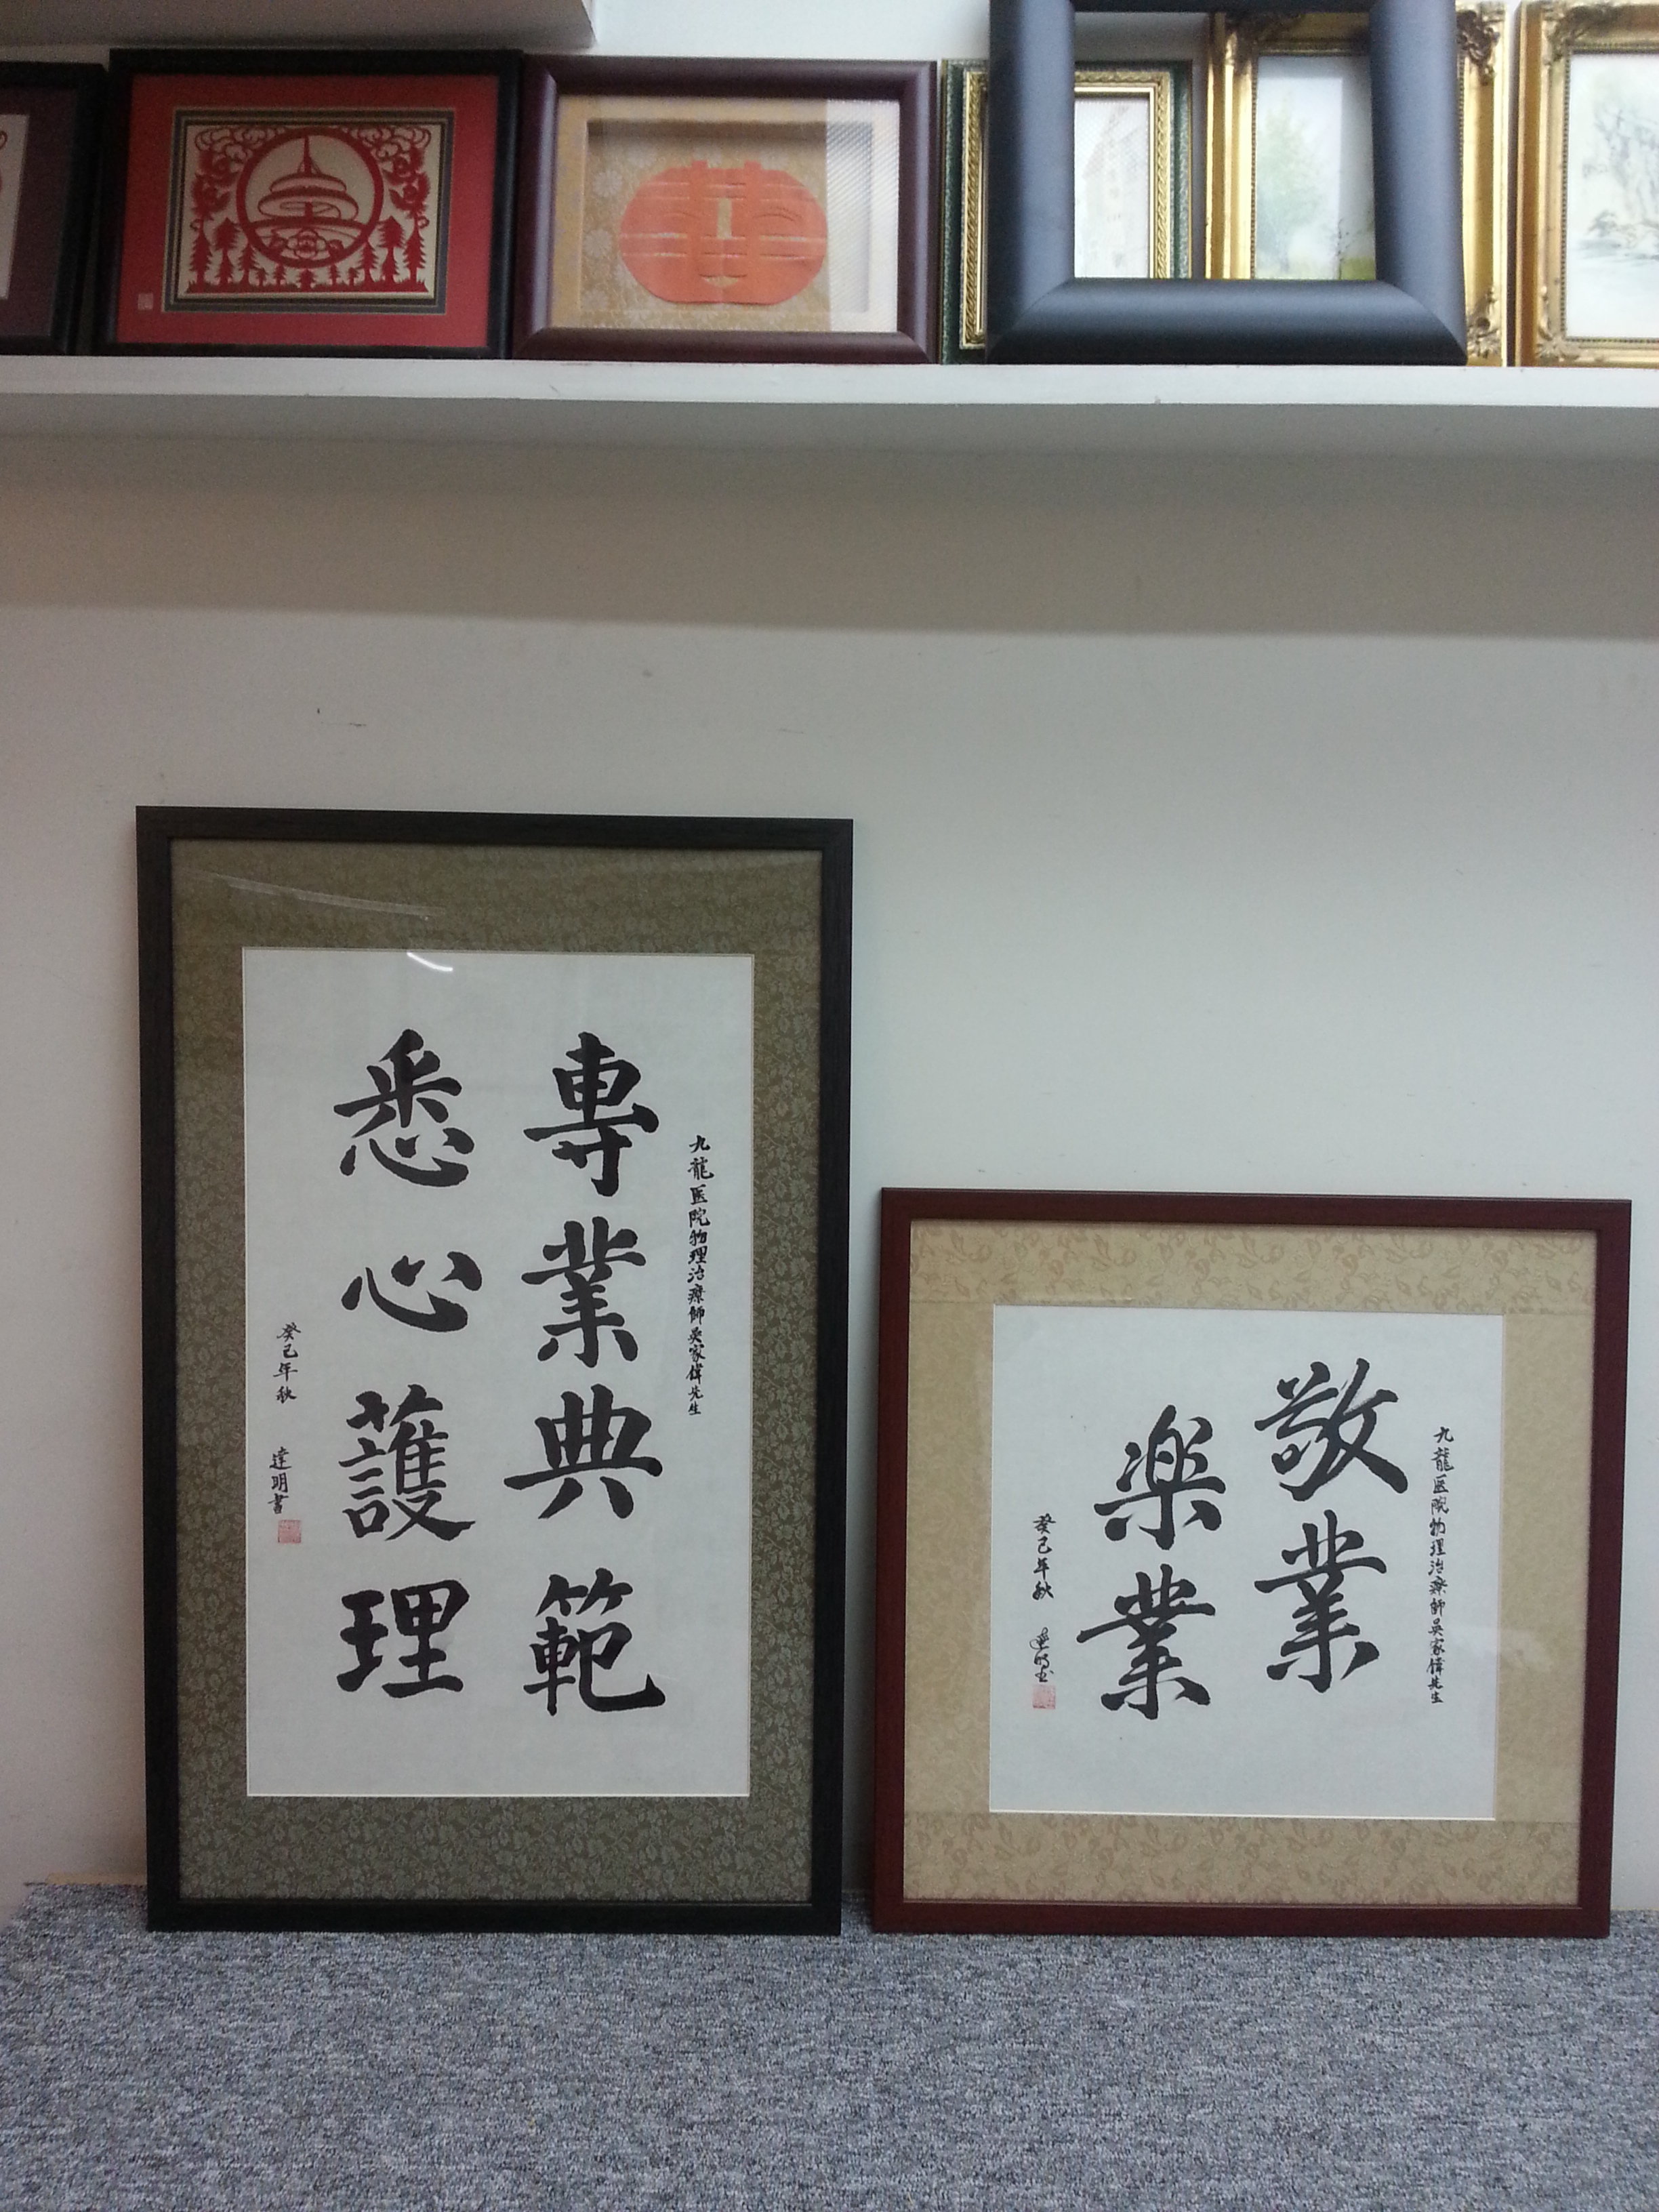 九龍医院物理治療師吳家偉先生
專業典範
悉心護理
癸巳年秋 達明書
九龍医院物理治療師吳家偉先生
敬業
楽業
癸巳年秋 達明書